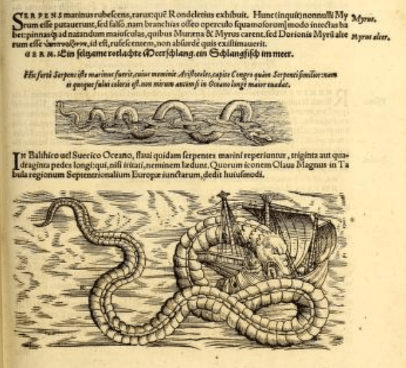 SERPENS marinus rubescens, rarus: quē Rondeletius exhibuit. Hunc (inquit) nonnulli My
rum esse putauerunt, sed falso, nam branchias osseo operculo squamosorum modo intectas ha
bet: pinnasq; ad natandum maiusculas, quibus Muræna & Myrus carent, sed Dorionis Myrū alte
rum esse id est, rufescentem, non absurdè quis existimauerit.
Myrus.
Myrus alter.
GERM. Ein seltzame rotlachte Meerschlang, ein Schlangfisch im meer.
His fortè Serpens iste marinus fuerit, cuius meminit Aristoteles, capite Congro quàm Serpenti similior: nam
et quoque fului coloris est. non mirum autem si in Oceano longè maior euadat.
IN Balthico uel Suecico Oceano, flaui quidam serpentes marini reperiuntur, triginta aut qua-
draginta pedes longi: qui, nisi irritati, neminem lædunt. Quorum iconem Olaus Magnus in Ta
bula regionum Septentrionalium Europæ iunctarum, dedit huiusmodi.